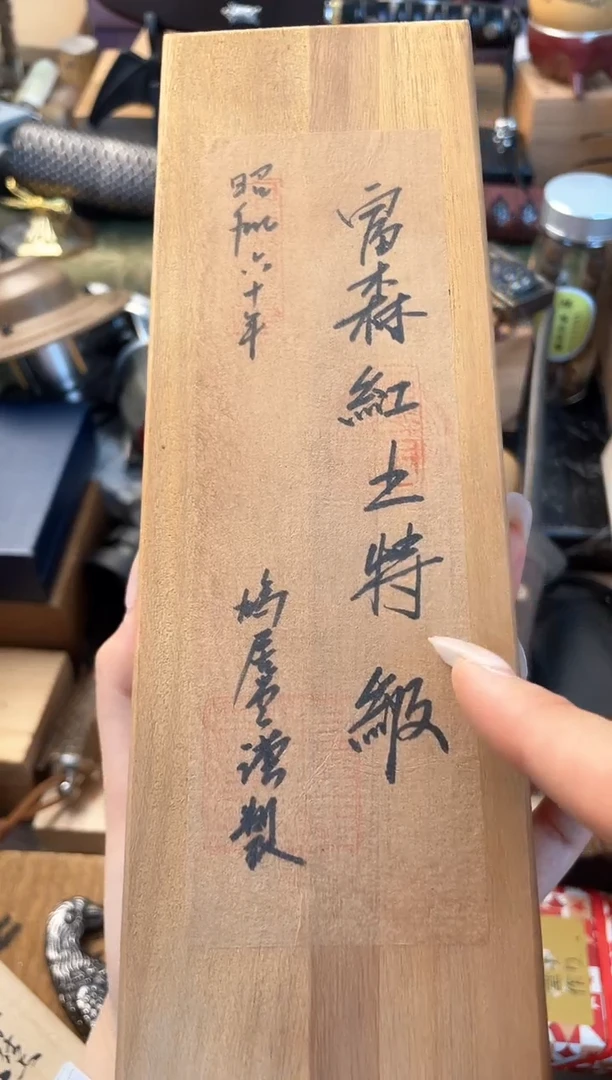 富森紅土特級
昭和六十年
鳩居堂謹製